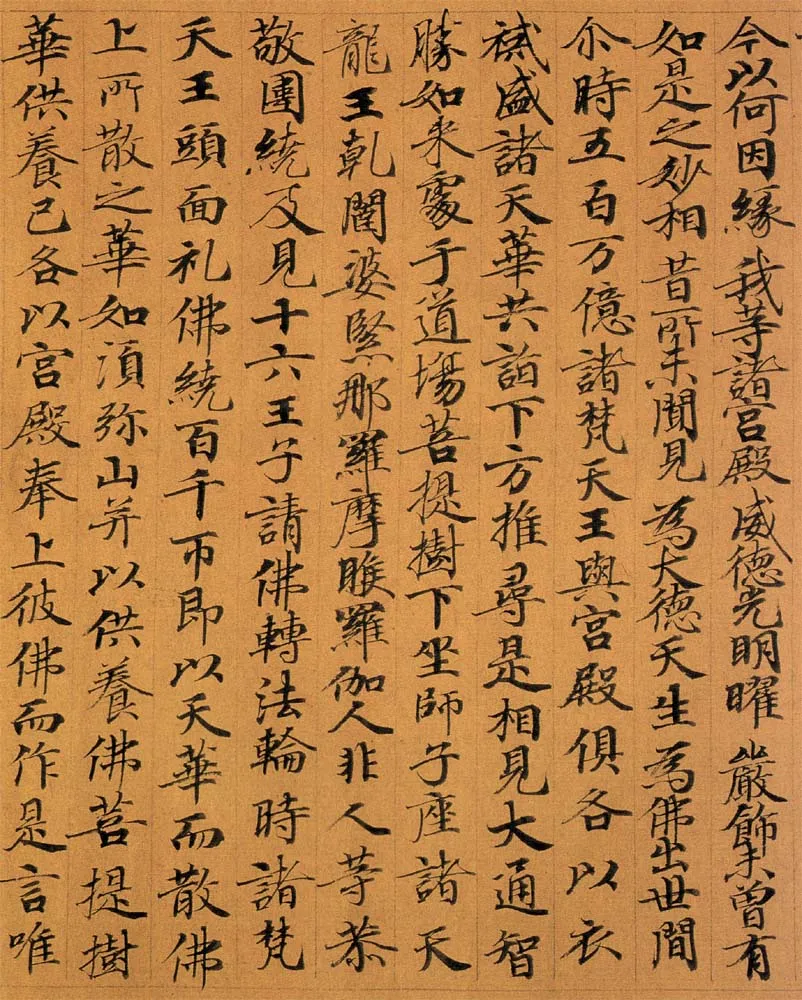 今以何因緣 我等諸宮殿 威德光明曜 嚴飾未曾有
如是之妙相 昔所未聞見 為大德天生 為佛出世間
尒時五百万億諸梵天王與宮殿俱各以衣
祴盛諸天華共詣下方推尋是相見大通智
勝如来處于道場菩提樹下坐師子座諸天
龍王乹闥婆緊那羅摩睺羅伽人非人等恭
敬圍繞及見十六王子請佛轉法輪時諸梵
天王頭面礼佛繞百千帀即以天華而散佛
上所散之華如湏弥山并以供養佛菩提樹
華供養已各以宮殿奉上彼佛而作是言唯